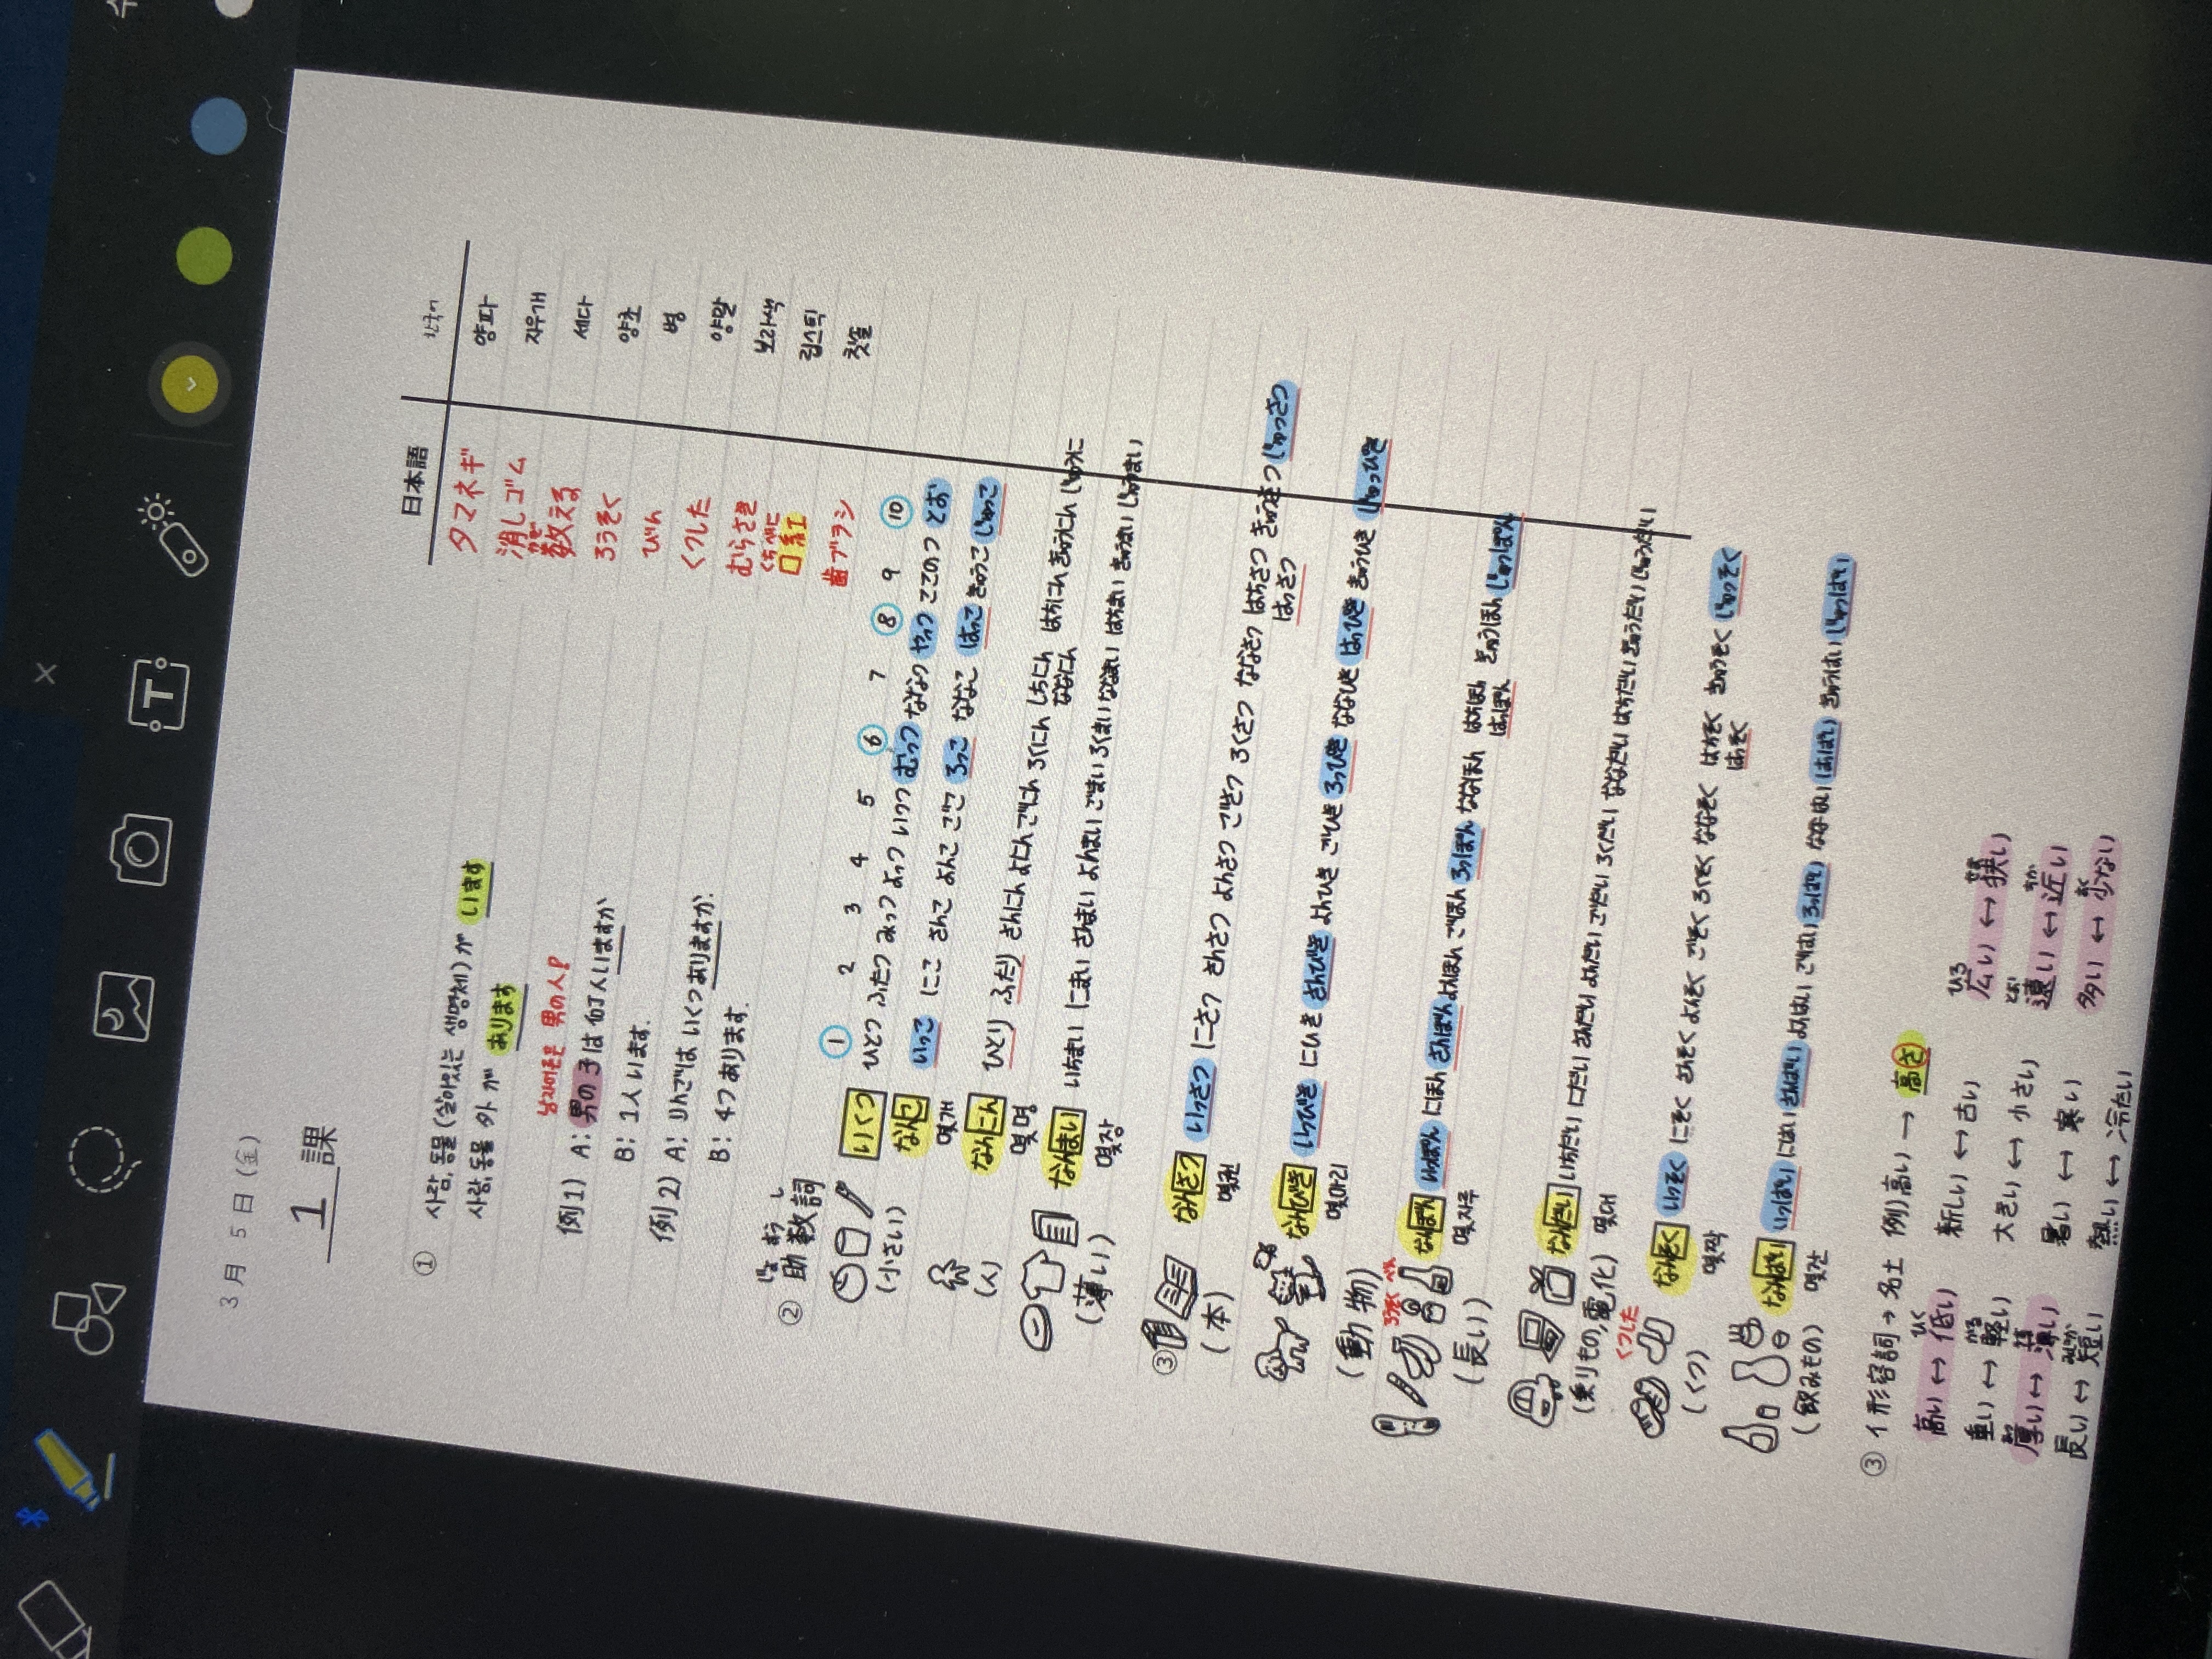 3月 5日 (金)
1 課
日本語 한국어
タマネギ 양파
消しゴム 지우개
かぞ
数える 세다
ろうそく 양초
びん 병
くつした 양말
むらさき 보라색
くちべに
口紅 립스틱
歯ブラシ 칫솔
① 사람, 동물 (살아있는 생명체) が います
사람, 동물 外 が あります
남자어른은 男の人!
例1) A: 男の子は 何人いますか
B: 1人 います.
例2) A: りんごは いくつ ありますか.
B: 4つ あります.
じょ すう し
② 助数詞
① 2 3 4 5 ⑥ 7 ⑧ 9 ⑩
(小さい) いくつ ひとつ ふたつ みっつ よっつ いつつ むっつ ななつ やっつ ここのつ とお
なんこ いっこ にこ さんこ よんこ ごこ ろっこ ななこ はっこ きゅうこ じゅっこ
몇개
(人) なんにん ひとり ふたり さんにん よにん ごにん ろくにん しちにん はちにん きゅうにん じゅうに
몇명 ななにん
(薄い) なんまい いちまい にまい さんまい よんまい ごまい ろくまい ななまい はちまい きゅうまい じゅうまい
몇장
③ (本) なんさつ いっさつ にさつ さんさつ よんさつ ごさつ ろくさつ ななさつ はちさつ きゅうさつ じゅっさつ
몇권 はっさつ
(動物) なんびき いっぴき にひき さんびき よんひき ごひき ろっぴき ななひき はっぴき きゅうひき じゅっぴき
몇마리
ろうそく
(長い) なんぼん いっぽん にほん さんぼん よんほん ごほん ろっぽん ななほん はちほん きゅうほん じゅっぽん
몇자루 はっぽん
(乗りもの,電化) なんだい いちだい にだい さんだい よんだい ごだい ろくだい ななだい はちだい きゅうだい じゅうだい
몇대
くつした
(くつ) なんぞく いっそく にそく さんぞく よんそく ごそく ろくそく ななそく はちそく きゅうそく じゅっそく
몇짝 はっそく
(飲みもの) なんばい いっぱい にはい さんばい よんはい ごはい ろっぱい ななはい はっぱい きゅうはい じゅっぱい
몇잔
③ イ形容詞 → 名士 例) 高い → 高さ
ひく ひろ せま
高い ↔ 低い 新しい ↔ 古い 広い ↔ 狭い
かる とお ちか
重い ↔ 軽い 大きい ↔ 小さい 遠い ↔ 近い
厚い ↔ 薄い 暑い ↔ 寒い 多い ↔ 少ない
みじか
長い ↔ 短い 熱い ↔ 冷たい